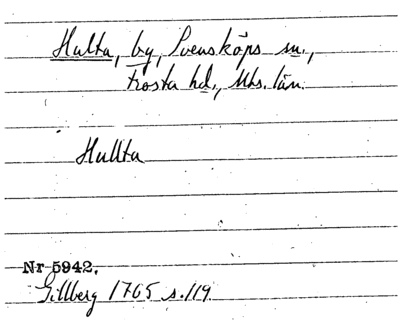 Hulta, by, Svensköps sn.,
Frosta hd., Mhs. län.
Hullta
Nr 5942.
Gillberg 1765 s. 119.